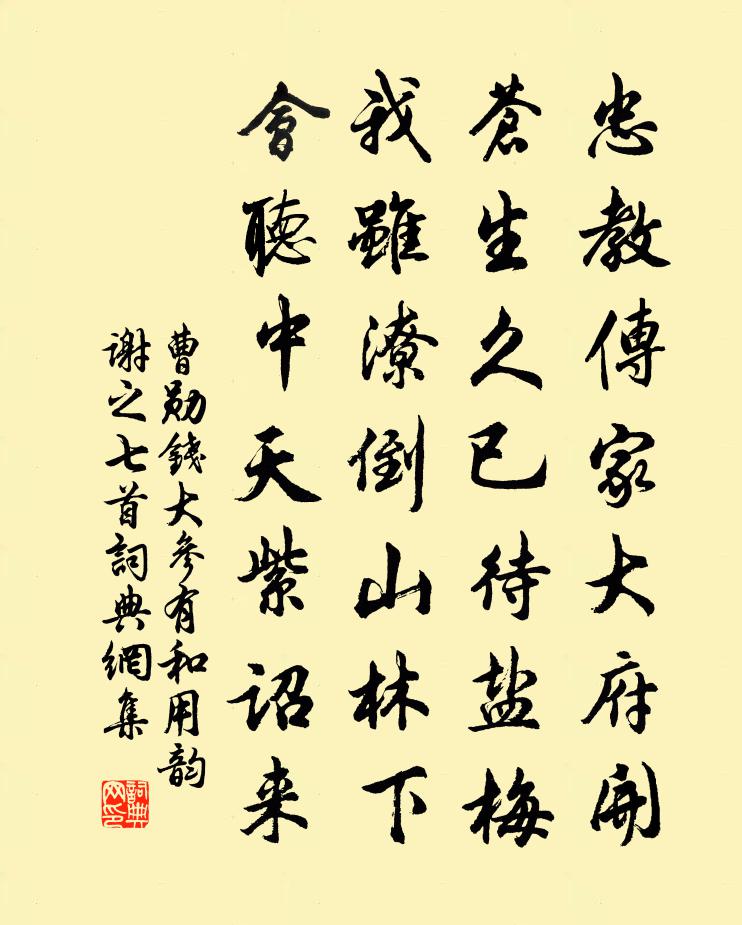 忠教傳家大府開
蒼生久已待盐梅
我雖潦倒山林下
會聽中天紫詔来
曹勛錢大參有和用韵
謝之七首詞典網集
詞典网印